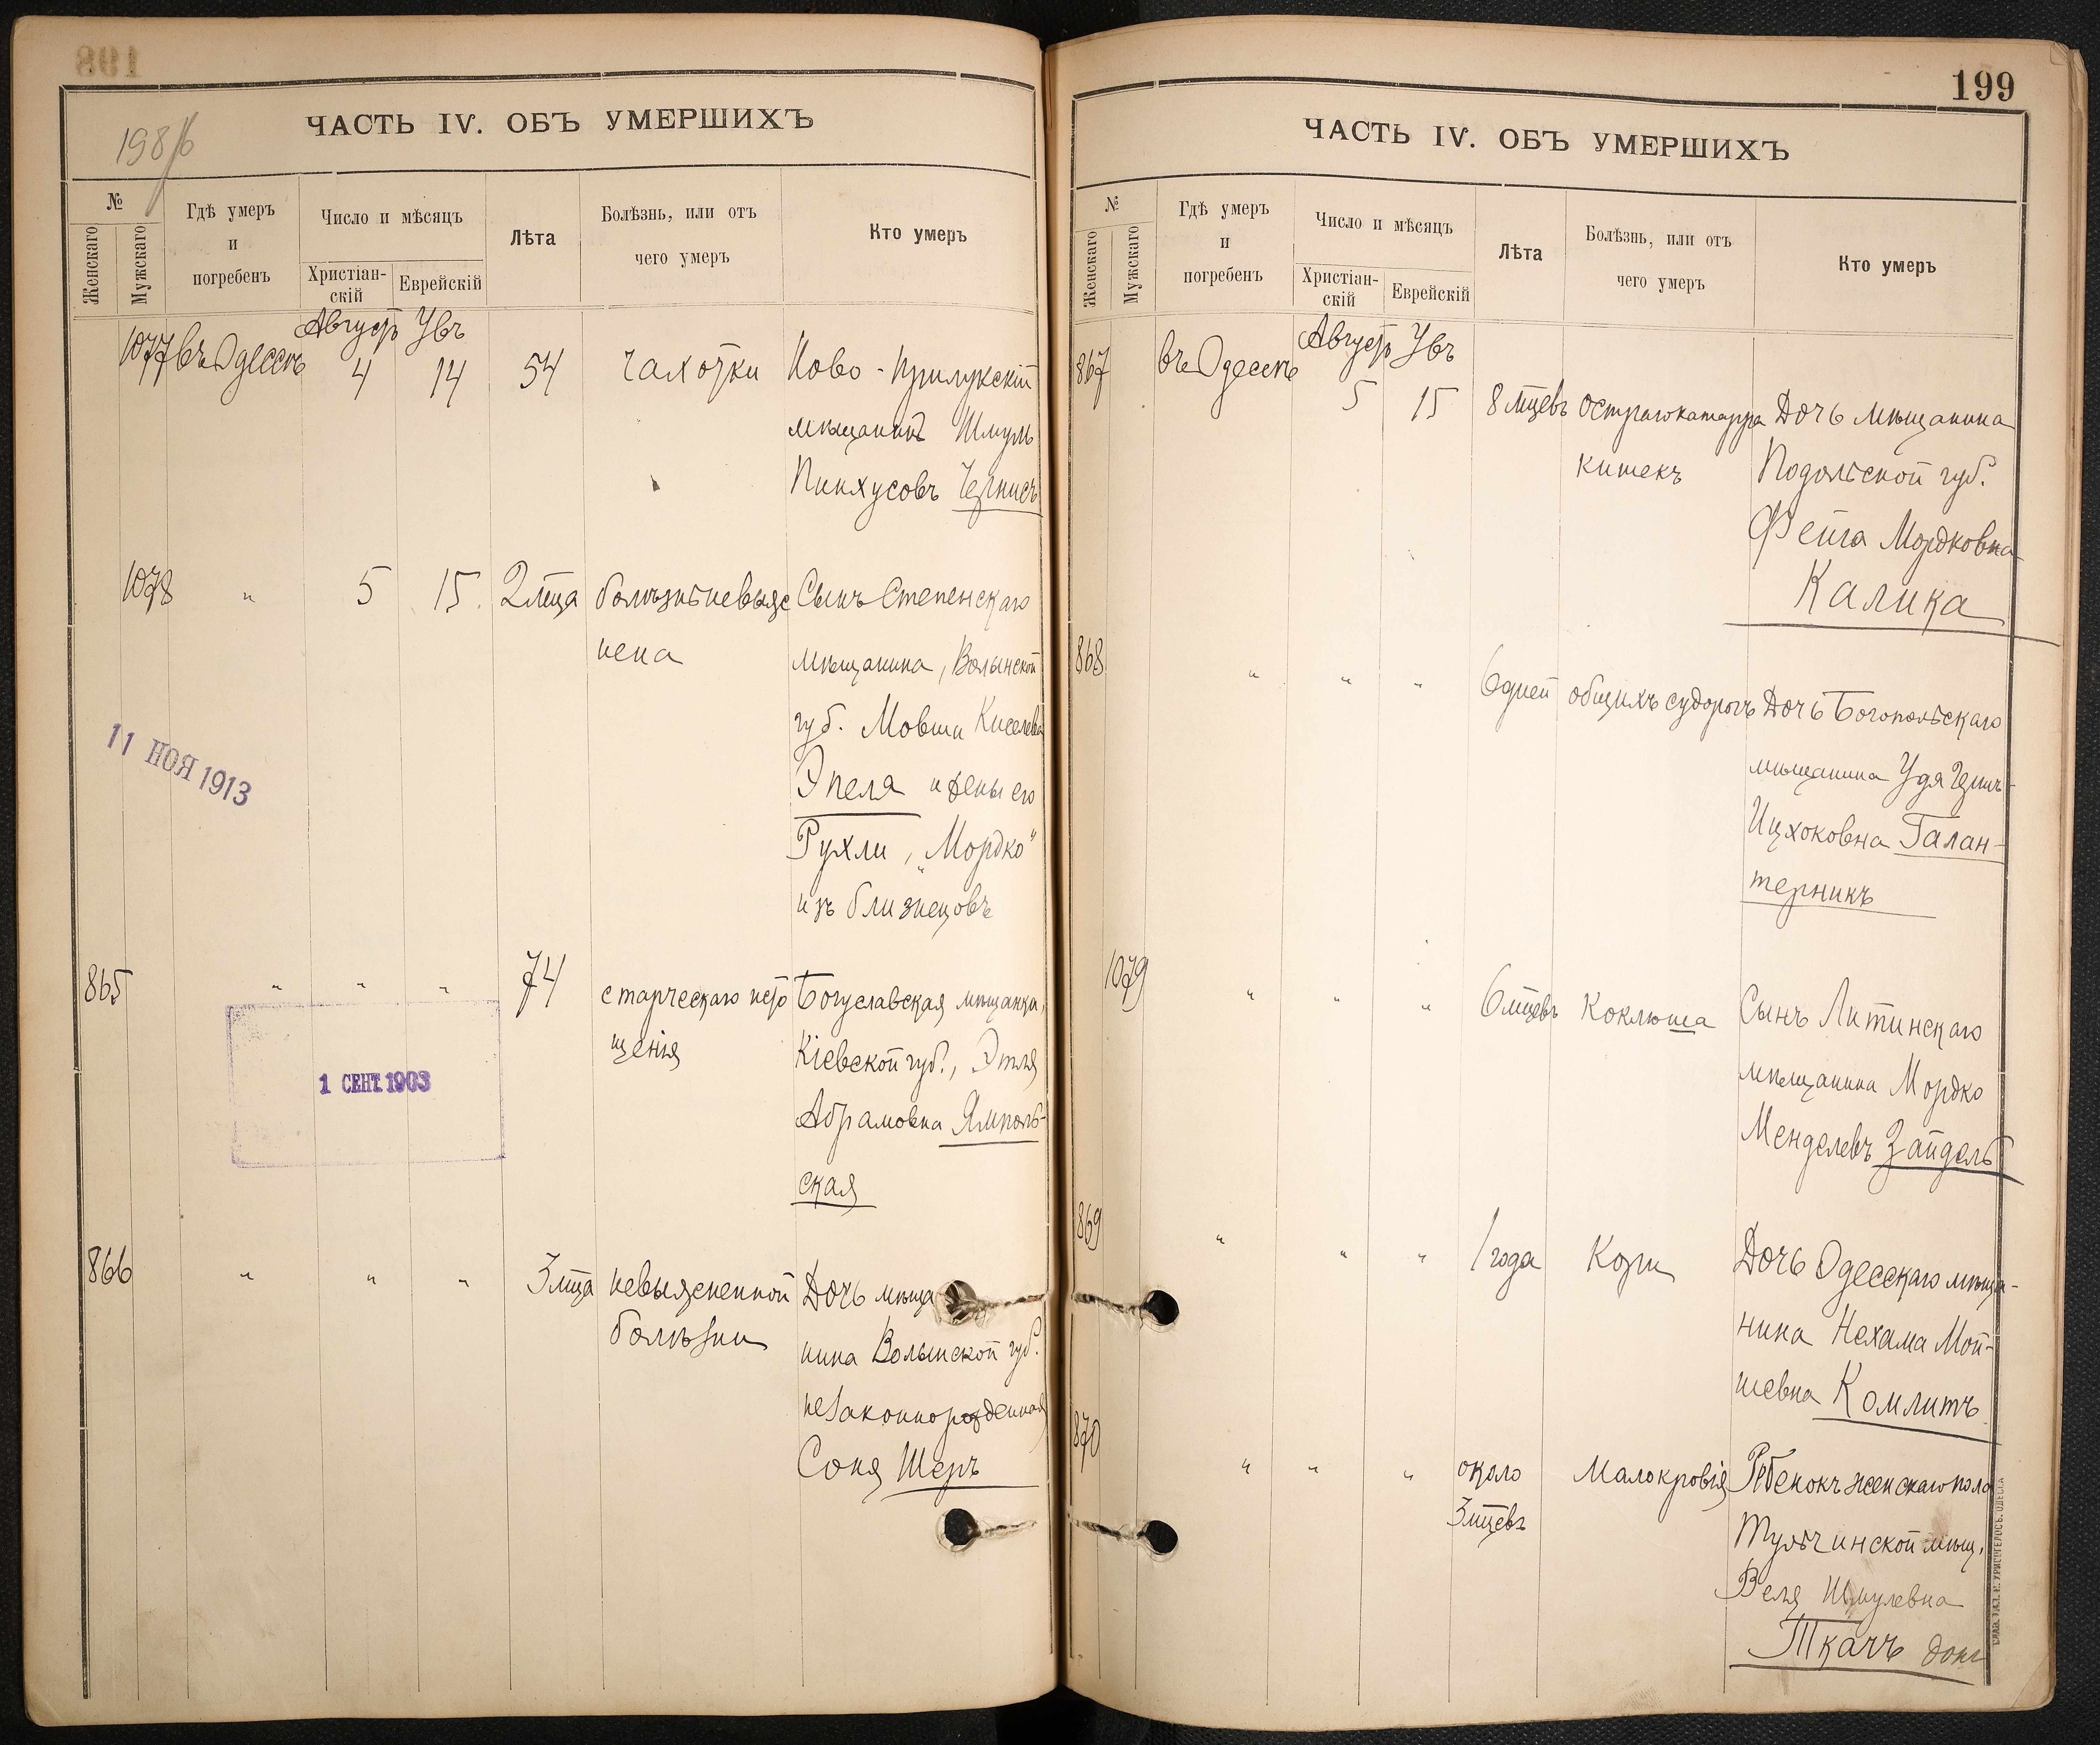 198/6
ЧАСТЬ IV. ОБЪ УМЕРШИХЪ
№
Женскаго
Мужскаго
Гдѣ умеръ
и
погребенъ
Число и мѣсяцъ
Христіан-
скій
Еврейскій
Лѣта
Болѣзнь, или отъ
чего умеръ
Кто умеръ
Августъ Увъ
1077 въ Одессѣ 4 14 54 чахотки Ново-Прилукскій
мѣщанинъ Шмуль
Пинхусовъ Чернисъ
1078 " 5 15. 2 мѣца болѣзнь невыяс Сынъ Степенскаго
нена мѣщанина, Волынской
губ. Мовши Киселева
Эпеля и жены его
Рухли, "Мордко"
изъ близнецовъ
11 НОЯ 1913
865 " " " 74 старческаго исто Богуславская мѣщанка,
щенія Кіевской губ., Этля
Абрамовна Ямполь-
ская
1 СЕНТ. 1903
866 " " " 3 мѣца невыясненной Дочь мѣща
болѣзни нина Волынской губ.
незаконнорожденная
Соня Шеръ
199
ЧАСТЬ IV. ОБЪ УМЕРШИХЪ
№
Женскаго
Мужскаго
Гдѣ умеръ
и
погребенъ
Число и мѣсяцъ
Христіан-
скій
Еврейскій
Лѣта
Болѣзнь, или отъ
чего умеръ
Кто умеръ
Августъ Увъ
867 въ Одессѣ 5 15 8 мѣцевъ остраго катарра Дочь мѣщанина
кишекъ Подольской губ.
Фейга Мордковна
Калика
868 " " " 6 дней общихъ судорогъ Дочь Богопольскаго
мѣщанина Удя
Ицхоковна Галан-
терникъ
1079 " " " 6 мѣцевъ Коклюша Сынъ Литинскаго
мѣщанина Мордко
Менделевъ Зайдель
869 " " " 1 года Кори Дочь Одесскаго мѣща-
нина Нехама Мой-
шевна Комлитъ
870 " " " около Малокровія Ребенокъ женскаго пола
3 мѣцевъ Тульчинской мѣщ.
Веля Шмулевна
Ткачъ